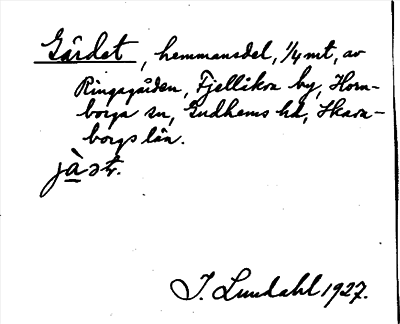 Gärdet, hemmansdel, 1/4 mt, av
Ringagården, Fjellåkra by, Horn-
borga sn, Gudhems hd, Skara-
borgs län.
I. Lundahl 1927.